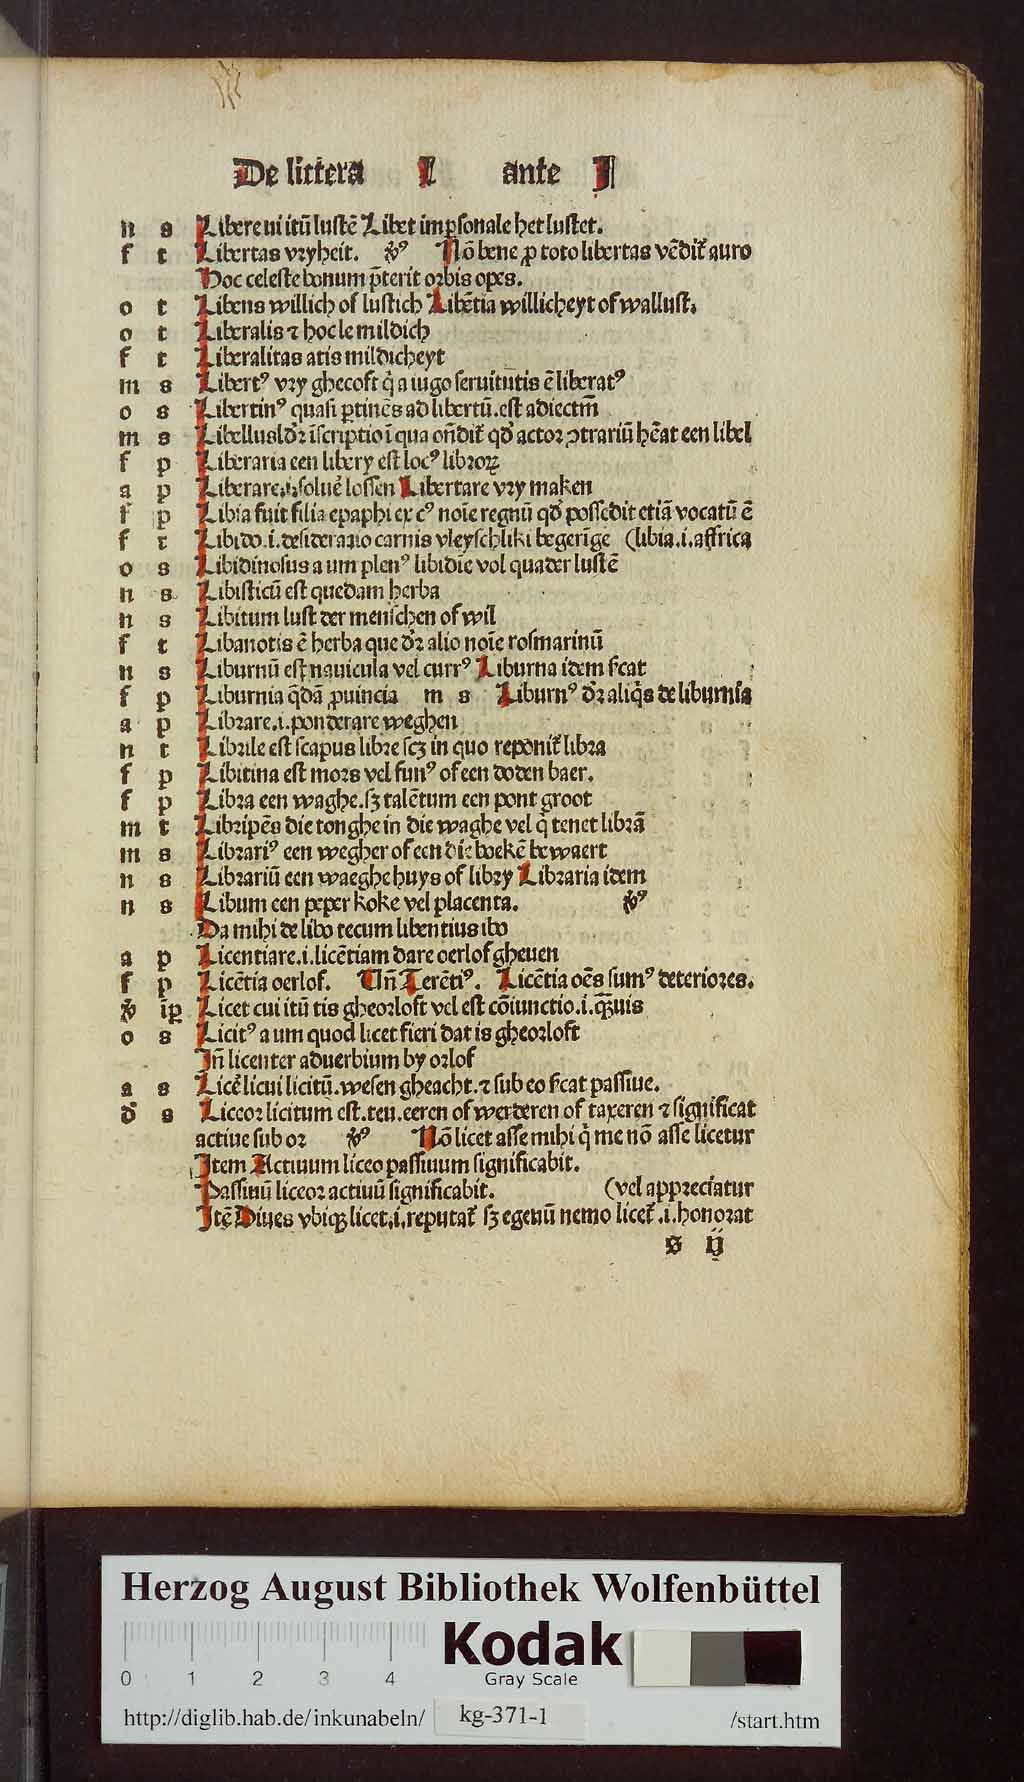 De littera L ante I
n s Libere ui itū lustē Libet imꝑsonale het lustet.
f t Libertas vryheit. v̉ꝰ Nō bene ꝓ toto libertas vēdit᷑ auro
Hoc celeste bonum p̄terit orbis opes.
o t Libens willich of lustich Libētia willicheyt of wallust.
o t Liberalis ⁊ hoc le mildich
f t Liberalitas atis mildicheyt
m s Libertꝰ vry ghecoft q̇ a iugo seruitutis ē liberatꝰ
o s Libertinꝰ quasi ꝑtinēs ad libertū.est adiectm̄
m s Libellus dr̄ īscriptio ī qua on̄dit᷑ qd̓ actor ↄtrariū hēat een libel
f p Liberaria een libery est locꝰ libroꝝ
a p Liberare.i.soluē lossen Libertare vry maken
f p Libia fuit filia epaphi ex cꝰ noīe regnū qd̓ possedit etiā vocatū ē
f t Libido.i.desideratio carnis vleyschliki begerīge (libia.i.affrica
o s Libidinosus a um plenꝰ libidīe vol quader lustē
n s Libisticū est quedam herba
n s Libitum lust der menschen of wil
f t Libanotis ē herba que dr̄ alio noīe rosmarinū
n s Liburnū est nauicula vel currꝰ Liburna idem s̄cat
f p Liburnia q̄dā ꝓuincia m s Liburnꝰ dr̄ aliq̇s de liburnia
a p Librare.i.ponderare weghen
n t Librile est scapus libre scꝫ in quo reponit᷑ libra
f p Libitina est mors vel funꝰ of een doden baer.
f p Libra een waghe.sꝫ talētum een pont groot
m t Libripēs die tonghe in die waghe vel q̇ tenet librā
m s Librariꝰ een wegher of een die boekē bewaert
n s Librariū een waeghe huys of libry Libraria idem
n s Libum een peper koke vel placenta. v̉ꝰ
Da mihi de libo tecum libentius ibo
a p Licentiare.i.licētiam dare oerlof gheuen
f p Licētia oerlof. Vn̄ Terētiꝰ. Licētia oēs sumꝰ deteriores.
v̉ īꝑ Licet cui itū tis gheorloft vel est cōiunctio.i.qꝫuis
o s Licitꝰ a um quod licet fieri dat is gheorloft
Jn̄ licenter aduerbium by orlof
a s Licē licui licitū.wesen gheacht.⁊ sub eo s̄cat passiue.
d̓ s Liceor licitum est.teu.eeren of werderen of taxeren ⁊ significat
actiue sub or v̉ꝰ Nō licet asse mihi q̇ me nō asse licetur
Jtem Actiuum liceo passiuum significabit.
Passiuū liceor actiuū significabit. (vel appreciatur
Jtē Diues vbiqꝫ licet.i.reputat᷑ sꝫ egenū nemo licet᷑.i.honorat
s ij
Herzog August Bibliothek Wolfenbüttel
0 1 2 3 4
Kodak
Gray Scale
http://diglib.hab.de/inkunabeln/ kg-371-1 /start.htm